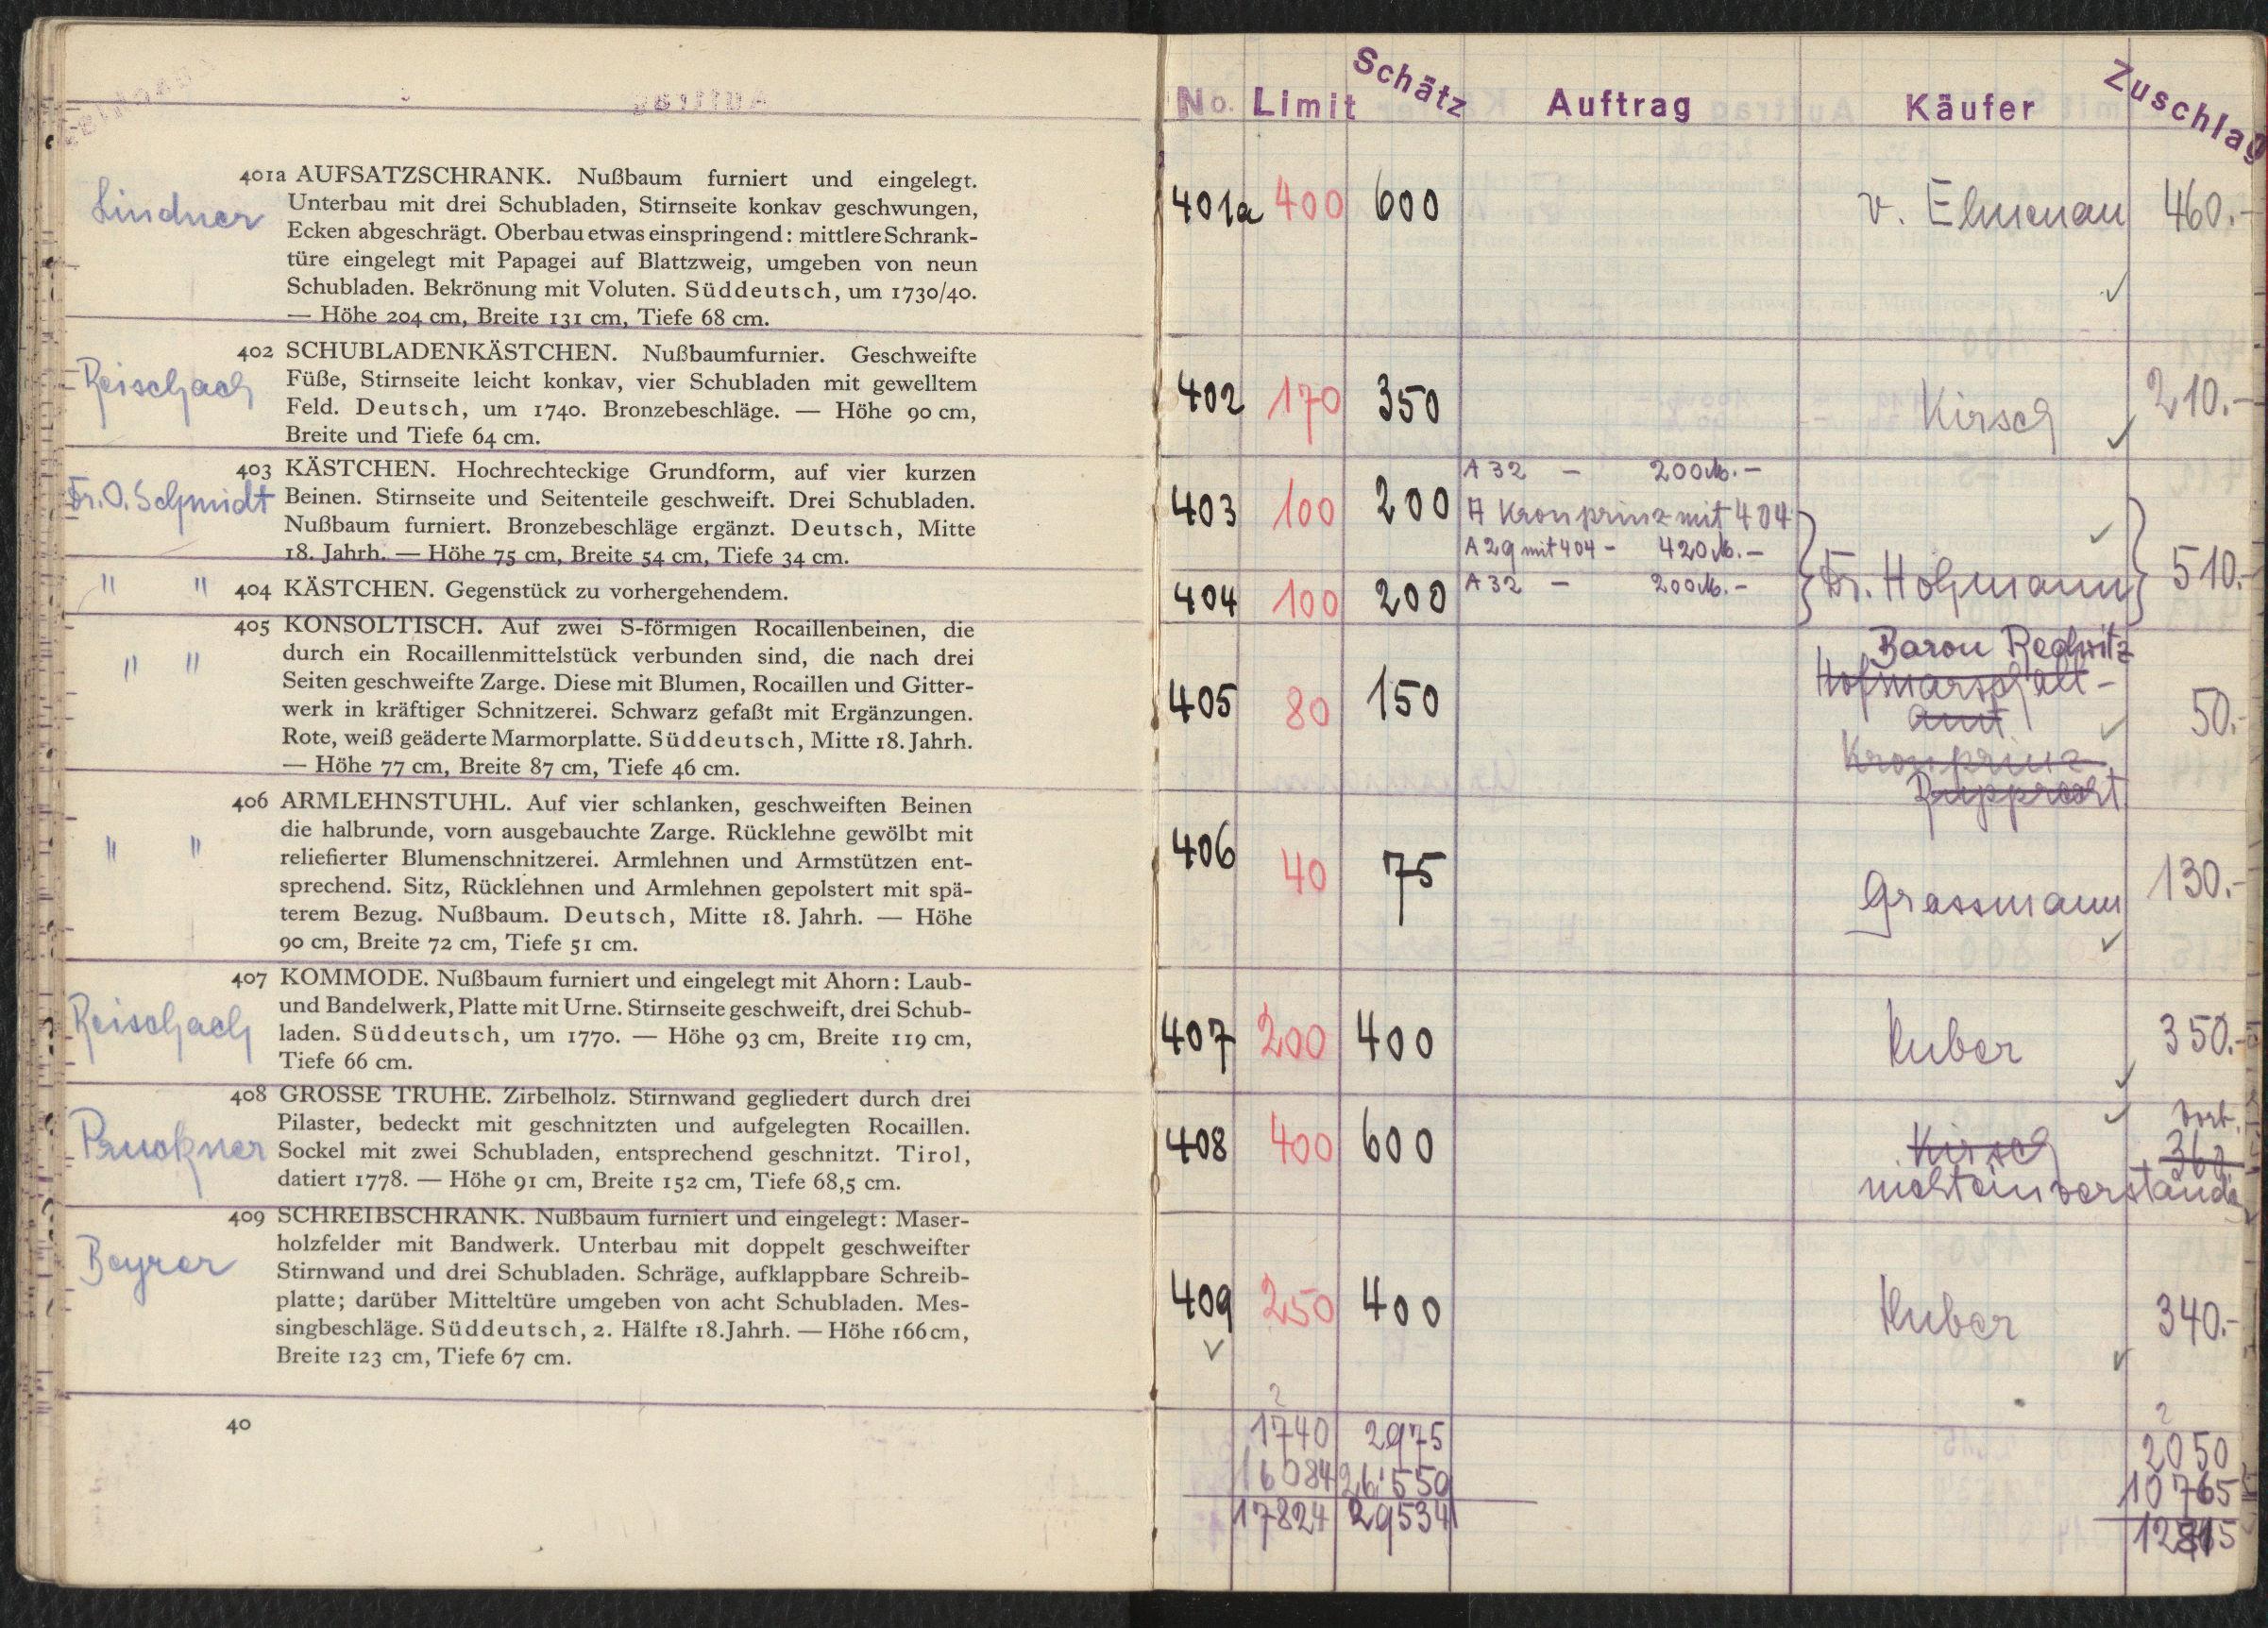 401a AUFSATZSCHRANK. Nußbaum furniert und eingelegt.
Lindner
Unterbau mit drei Schubladen, Stirnseite konkav geschwungen,
Ecken abgeschrägt. Oberbau etwas einspringend: mittlere Schrank-
türe eingelegt mit Papagei auf Blattzweig, umgeben von neun
Schubladen. Bekrönung mit Voluten. Süddeutsch, um 1730/40.
— Höhe 204 cm, Breite 131 cm, Tiefe 68 cm.
402 SCHUBLADENKÄSTCHEN. Nußbaumfurnier. Geschweifte
Reischach
Füße, Stirnseite leicht konkav, vier Schubladen mit gewelltem
Feld. Deutsch, um 1740. Bronzebeschläge. — Höhe 90 cm,
Breite und Tiefe 64 cm.
403 KÄSTCHEN. Hochrechteckige Grundform, auf vier kurzen
Dr. O. Schmidt
Beinen. Stirnseite und Seitenteile geschweift. Drei Schubladen.
Nußbaum furniert. Bronzebeschläge ergänzt. Deutsch, Mitte
18. Jahrh. — Höhe 75 cm, Breite 54 cm, Tiefe 34 cm.
" " 404 KÄSTCHEN. Gegenstück zu vorhergehendem.
405 KONSOLTISCH. Auf zwei S-förmigen Rocaillenbeinen, die
" "
durch ein Rocaillenmittelstück verbunden sind, die nach drei
Seiten geschweifte Zarge. Diese mit Blumen, Rocaillen und Gitter-
werk in kräftiger Schnitzerei. Schwarz gefaßt mit Ergänzungen.
Rote, weiß geäderte Marmorplatte. Süddeutsch, Mitte 18. Jahrh.
— Höhe 77 cm, Breite 87 cm, Tiefe 46 cm.
406 ARMLEHNSTUHL. Auf vier schlanken, geschweiften Beinen
die halbrunde, vorn ausgebauchte Zarge. Rücklehne gewölbt mit
" "
reliefierter Blumenschnitzerei. Armlehnen und Armstützen ent-
sprechend. Sitz, Rücklehnen und Armlehnen gepolstert mit spä-
terem Bezug. Nußbaum. Deutsch, Mitte 18. Jahrh. — Höhe
90 cm, Breite 72 cm, Tiefe 51 cm.
407 KOMMODE. Nußbaum furniert und eingelegt mit Ahorn: Laub-
Reischach
und Bandelwerk, Platte mit Urne. Stirnseite geschweift, drei Schub-
laden. Süddeutsch, um 1770. — Höhe 93 cm, Breite 119 cm,
Tiefe 66 cm.
408 GROSSE TRUHE. Zirbelholz. Stirnwand gegliedert durch drei
Pilaster, bedeckt mit geschnitzten und aufgelegten Rocaillen.
Pruckner
Sockel mit zwei Schubladen, entsprechend geschnitzt. Tirol,
datiert 1778. — Höhe 91 cm, Breite 152 cm, Tiefe 68,5 cm.
409 SCHREIBSCHRANK. Nußbaum furniert und eingelegt: Maser-
Beyrer
holzfelder mit Bandwerk. Unterbau mit doppelt geschweifter
Stirnwand und drei Schubladen. Schräge, aufklappbare Schreib-
platte; darüber Mitteltüre umgeben von acht Schubladen. Mes-
singbeschläge. Süddeutsch, 2. Hälfte 18. Jahrh. — Höhe 166 cm,
Breite 123 cm, Tiefe 67 cm.
40
No. Limit Schätz Auftrag Käufer Zuschlag
401a 400 600 v. Elmenau 460.-
402 170 350 Kirsch 210.-
A 32 - 200 M.-
403 100 200 A Kronprinz mit 404
A 29 mit 404 - 420 M.-
404 100 200 A 32 - 200 M.- Dr. Hohmann 510.-
Baron Redwitz
Hofmarschall-
amt
405 80 150 50.-
Kronprinz
Rupprecht
406 40 75 Grassmann 130.-
407 200 400 Huber 350.-
408 400 600 Kirsch 360
nicht einverstanden
409 250 400 Huber 340.-
2 2
1740 2975 2050
16084 26'559 10765
17824 29534 12815